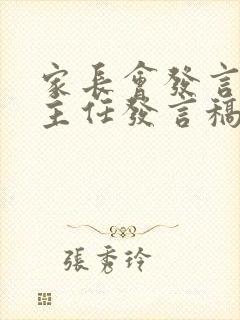 家長會發言
主任發言稿
張秀玲